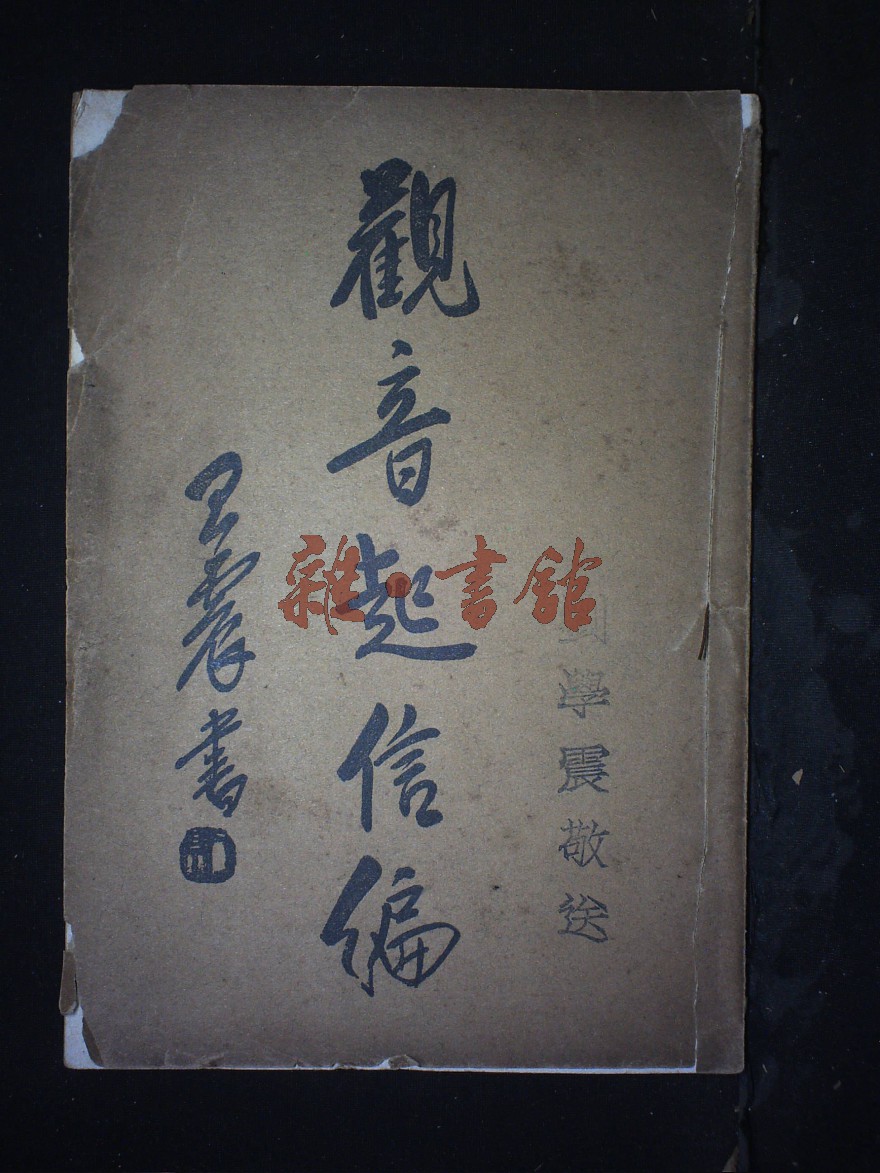 劉學震敬送
觀音起信編
王震書
雜·書館